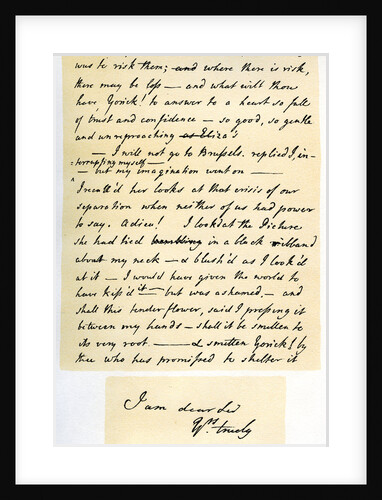 was to risk them; and where there is risk,
there may be loss — and what wilt thou
have, Yorick! to answer to a heart so full
of trust and confidence — so good, so gentle
and unreproaching as Eliza's
— I will not go to Brussels. replied I, in-
-terrupting myself —
— but my imagination went on —
I recall'd her looks at that crisis of our
separation when neither of us had power
to say. Adieu! I look'd at the Picture
she had tied in a black ribband
about my neck — & blush'd as I look'd
at it — I would have given the world to
have kiss'd it — but was ashamed. — and
shall this tender flower, said I pressing it
between my hands — shall it be smitten to
its very root — & smitten Yorick! by
thee who has promised to shelter it
I am dear Sir
Yrs. truely